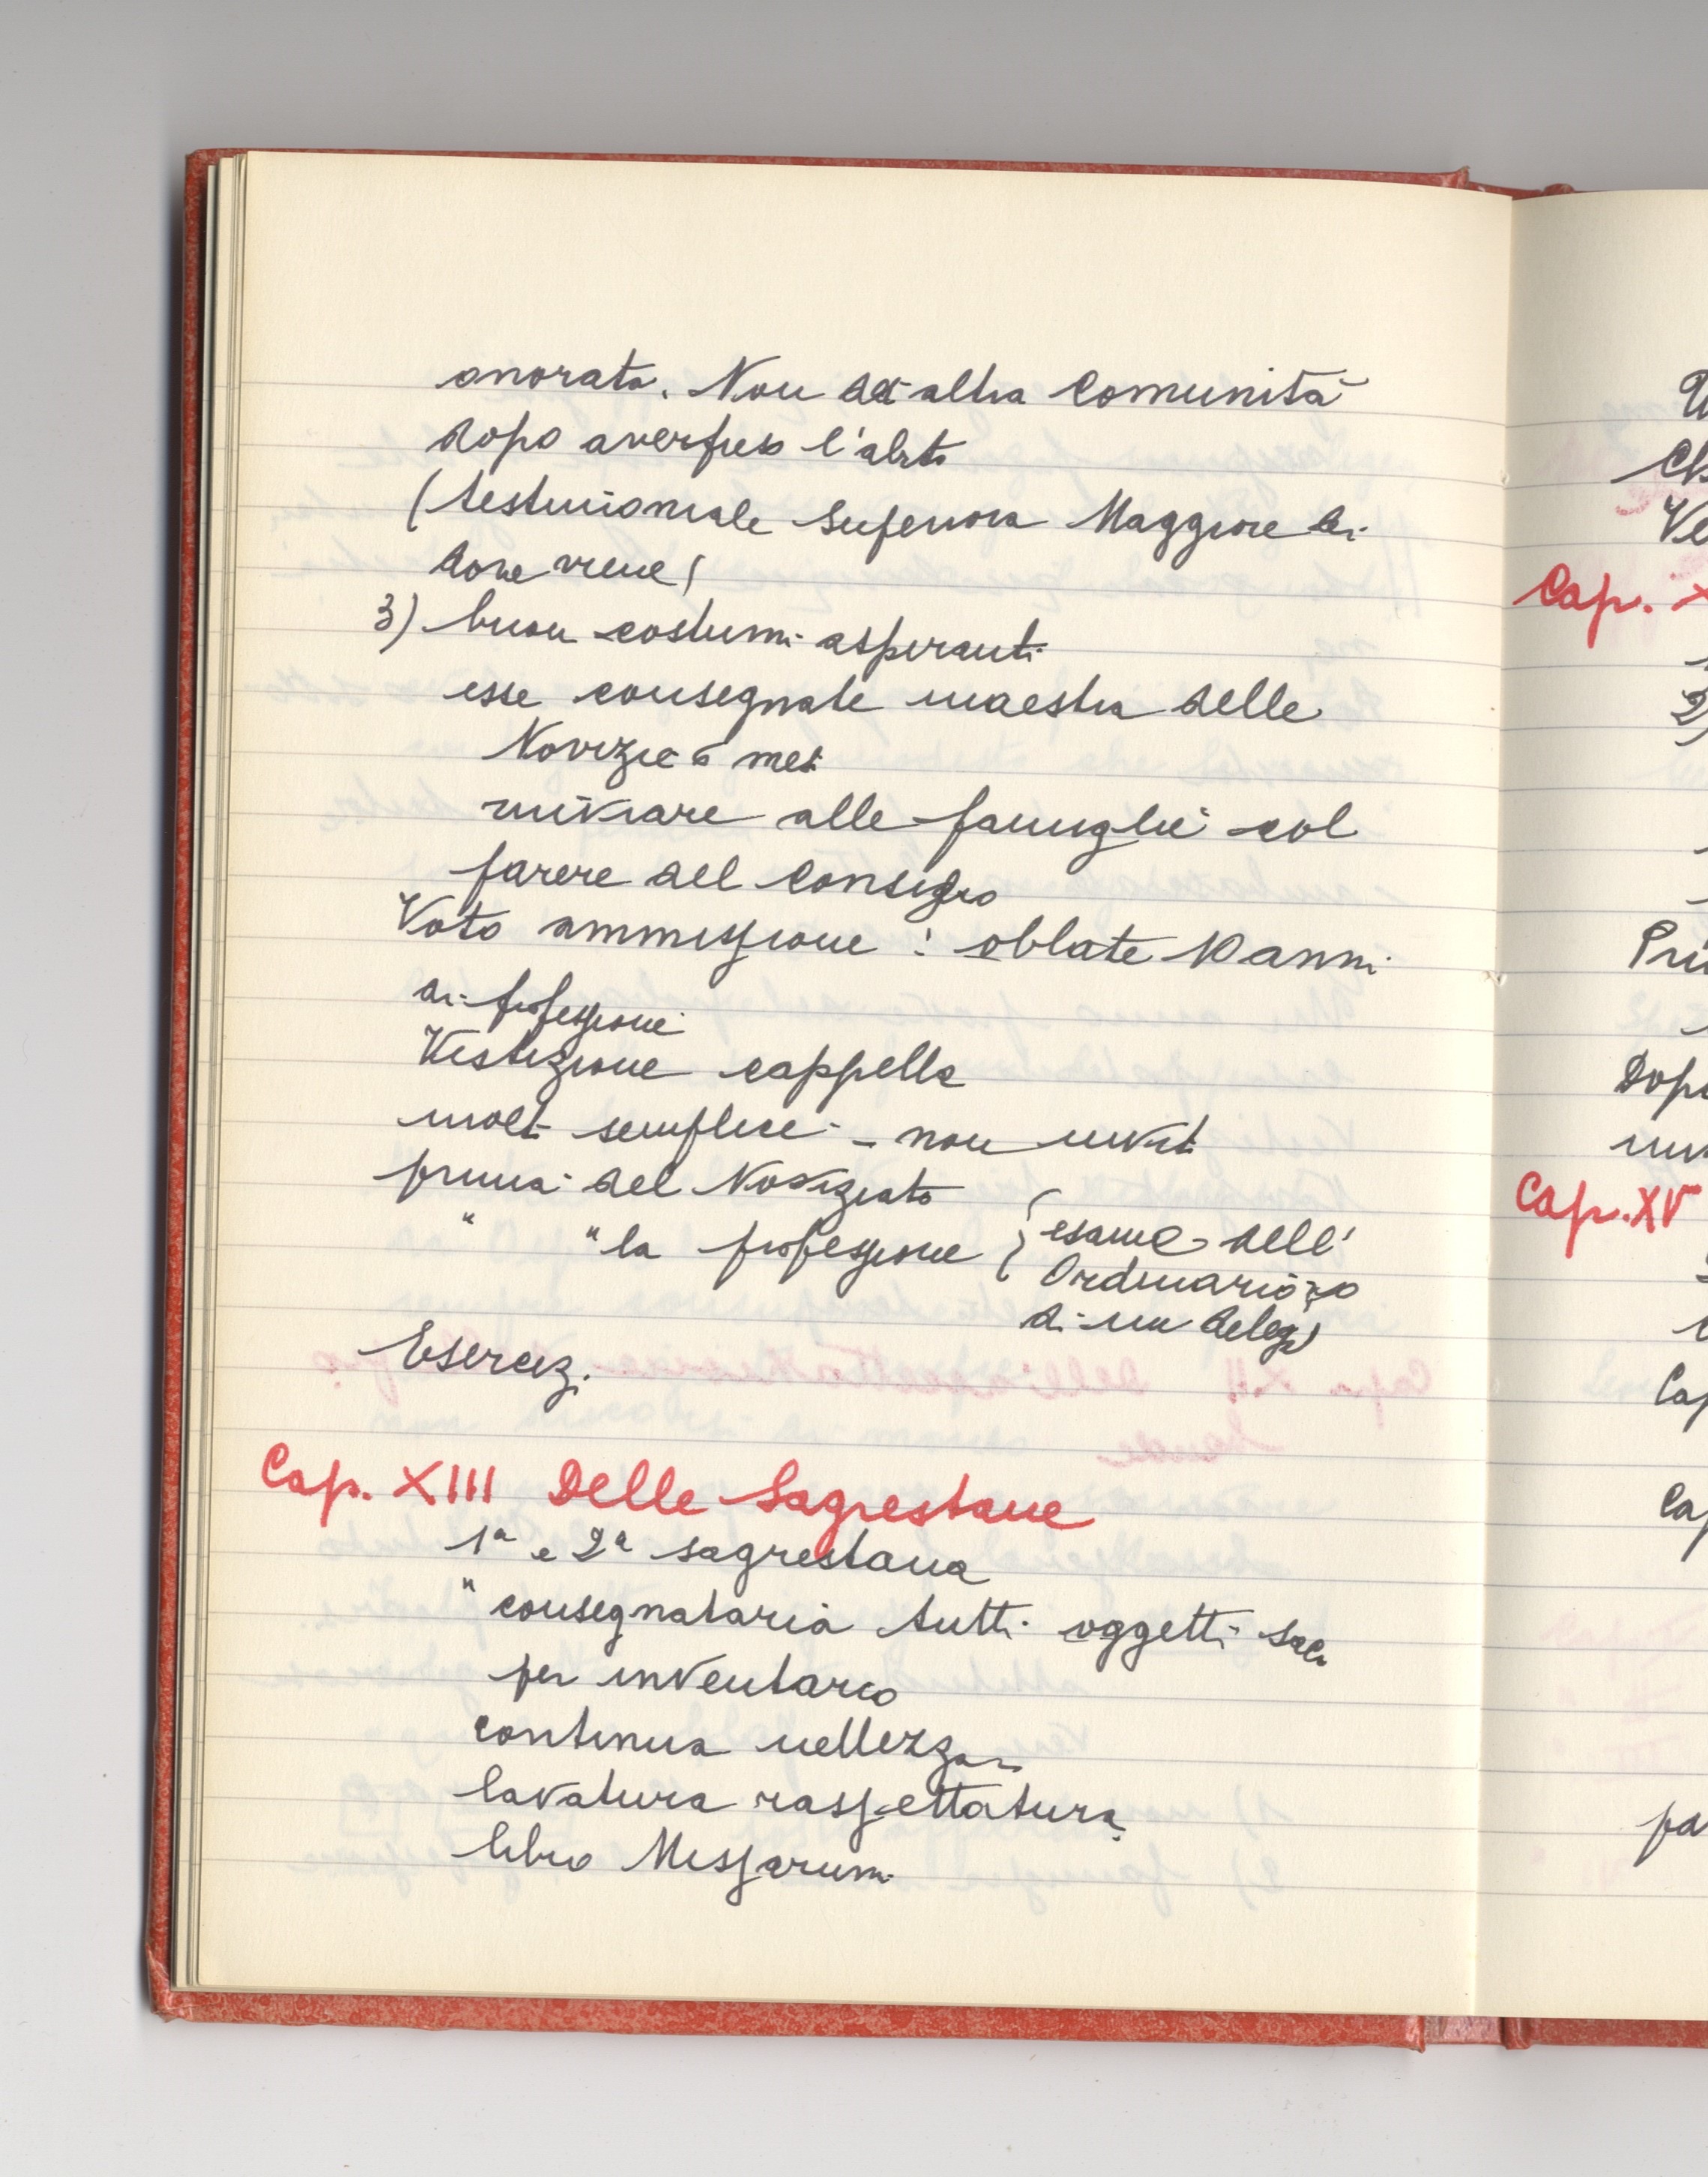 onorata. Non da altra Comunità
dopo aver preso l'abito
(testimoniale Superiora Maggiore di
dove viene)
3) buoni costumi aspiranti
esse consegnate maestra delle
Novizie 6 mesi
inviare alle famiglie col
parere del Consiglio
Voto ammissione : oblate 10 anni
di professione
Vestizione cappella
molt semplice - non invit
prima del Noviziato
" " la professione { esame dell'
Ordinario o
di un deleg)
Eserciz.
Cap. XIII Delle Sagrestane
1ª e 2ª sagrestana
" consegnataria tutti oggetti sacr
per inventario
continua nettezza
lavatura rassettatura
libro Missarum
Cap.
2)
Cap. XV
Cap
Cap